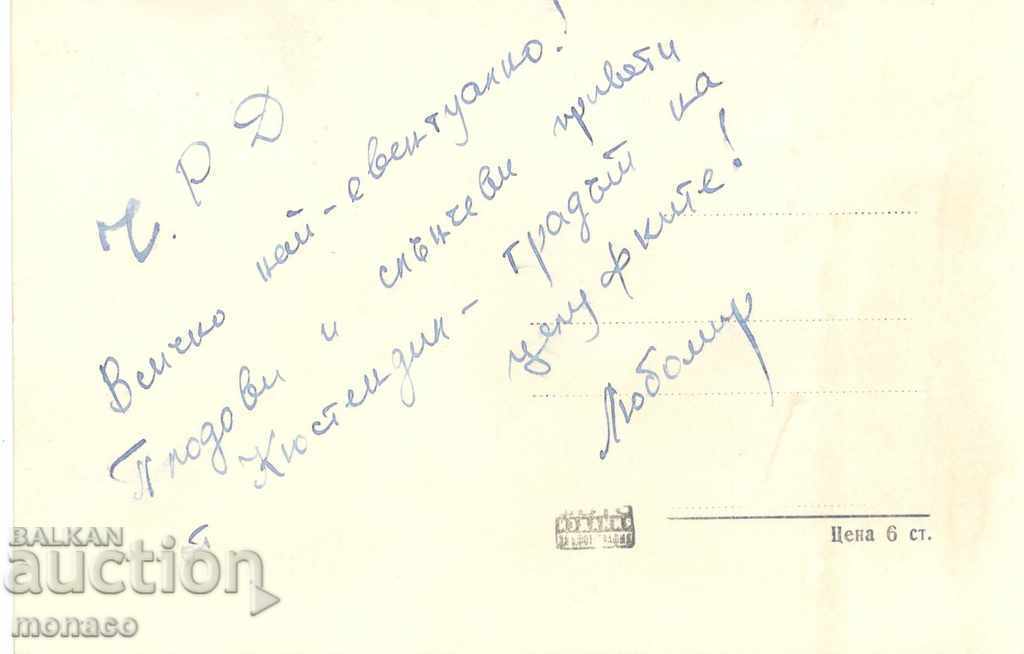 Ч. Р Д
Всичко най-евентуално!
Плодови и слънчеви привети
Кюстендил - градът на
ценуфките!
Любомир
Цена 6 ст.
BALKAN
auction
monaco